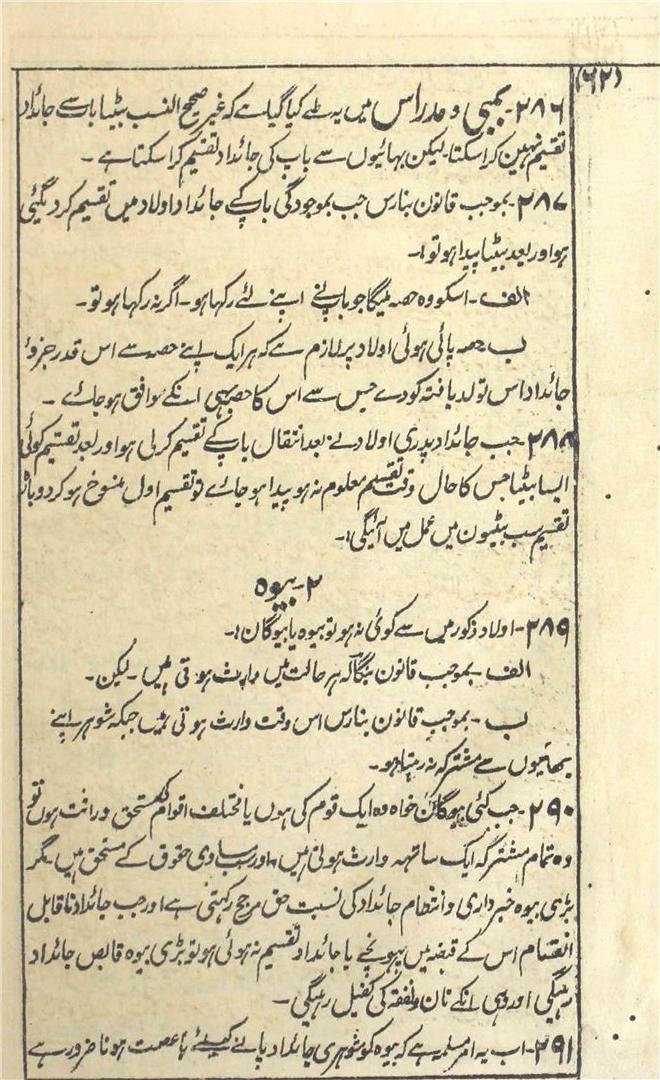 (۶۲)
۲۸۶- بمبئی و مدراس میں یہ طے کیا گیا ہے کہ غیر صحیح النسب بیٹا باپ سے جائداد
تقسیم نہین کرا سکتا لیکن بہائیوں سے باپ کی جائداد تقسیم کرا سکتا ہے -
۲۸۷- بموجب قانون بنارس جب بموجودگی باپ کے جائداد اولاد میں تقسیم کر دیگئی
ہو اور بعد بیٹا پیدا ہو تو :-
الف - اسکو وہ حصہ ملیگا جو باپ نے اپنے لئے رکہا ہو - اگر نہ رکہا ہو تو -
ب - حصہ پائی ہوئی اولاد پر لازم ہے کہ ہر ایک اپنے حصہ سے اس قدر جزو
جائداد اس تولد یافتہ کو دے جس سے اس کا حصہ بہی انکے موافق ہو جائے -
۲۸۸- جب جائداد پدری اولاد نے بعد انتقال باپ کے تقسیم کر لی ہو اور بعد تقسیم کوئی
ایسا بیٹا جس کا حال وقت تقسیم معلوم نہ ہو پیدا ہو جائے تو تقسیم اول منسوخ ہو کر دوبارہ
تقسیم سب بیٹیون میں عمل میں آئیگی :-
۲- بیوہ
۲۸۹- اولاد ذکور میں سے کوئی نہ ہو تو بیوہ یا بیوگان :-
الف - بموجب قانون بنگالہ ہر حالت میں وارث ہوتی ہیں - لیکن -
ب - بموجب قانون بنارس اس وقت وارث ہوتی ہیں جبکہ شوہر اپنے
بھائیوں سے مشترکہ نہ رہتا ہو -
۲۹۰- جب کئی بیوگان خواہ وہ ایک قوم کی ہوں یا مختلف اقوام کی مستحق وراثت ہوں تو
وہ تمام مشترکہ ایک ساتہہ وارث ہوتی ہیں اور سب مساوی حقوق کے مستحق ہیں مگر
بڑی بیوہ خبرداری و انتظام جائداد کی نسبت حق مرجح رکہتی ہے اور جب جائداد ناقابل
انقسام اس کے قبضہ میں پہونچے یا جائداد تقسیم نہ ہوئی ہو تو بڑی بیوہ قابض جائداد
رہیگی اور وہی انکے نان و نفقہ کی کفیل رہیگی -
۲۹۱- اب یہ امر مسلمہ ہے کہ بیوہ کو شوہری جائداد پانے کیلئے باعصمت ہونا ضرور ہے